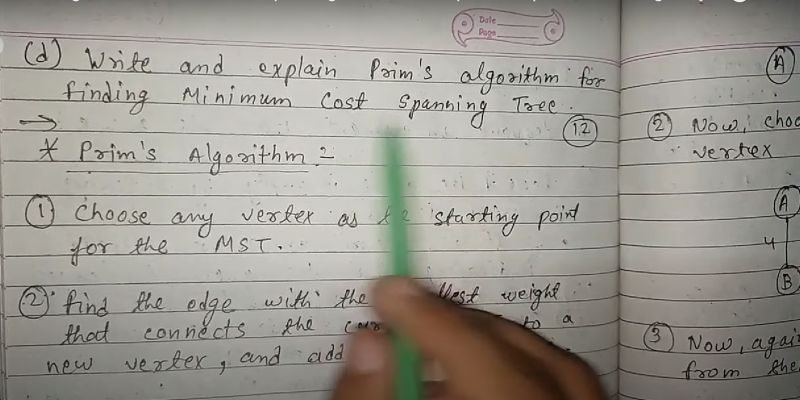 Date
Page
(d) Write and explain Prim's algorithm for
finding Minimum Cost Spanning Tree.
→ (12)
* Prim's Algorithm :
① Choose any vertex as the starting point
for the MST.
② find the edge with the weight
that connects the to a
new vertex, and add
A
② Now,
vertex
A
4
B
③ Now, again
from the